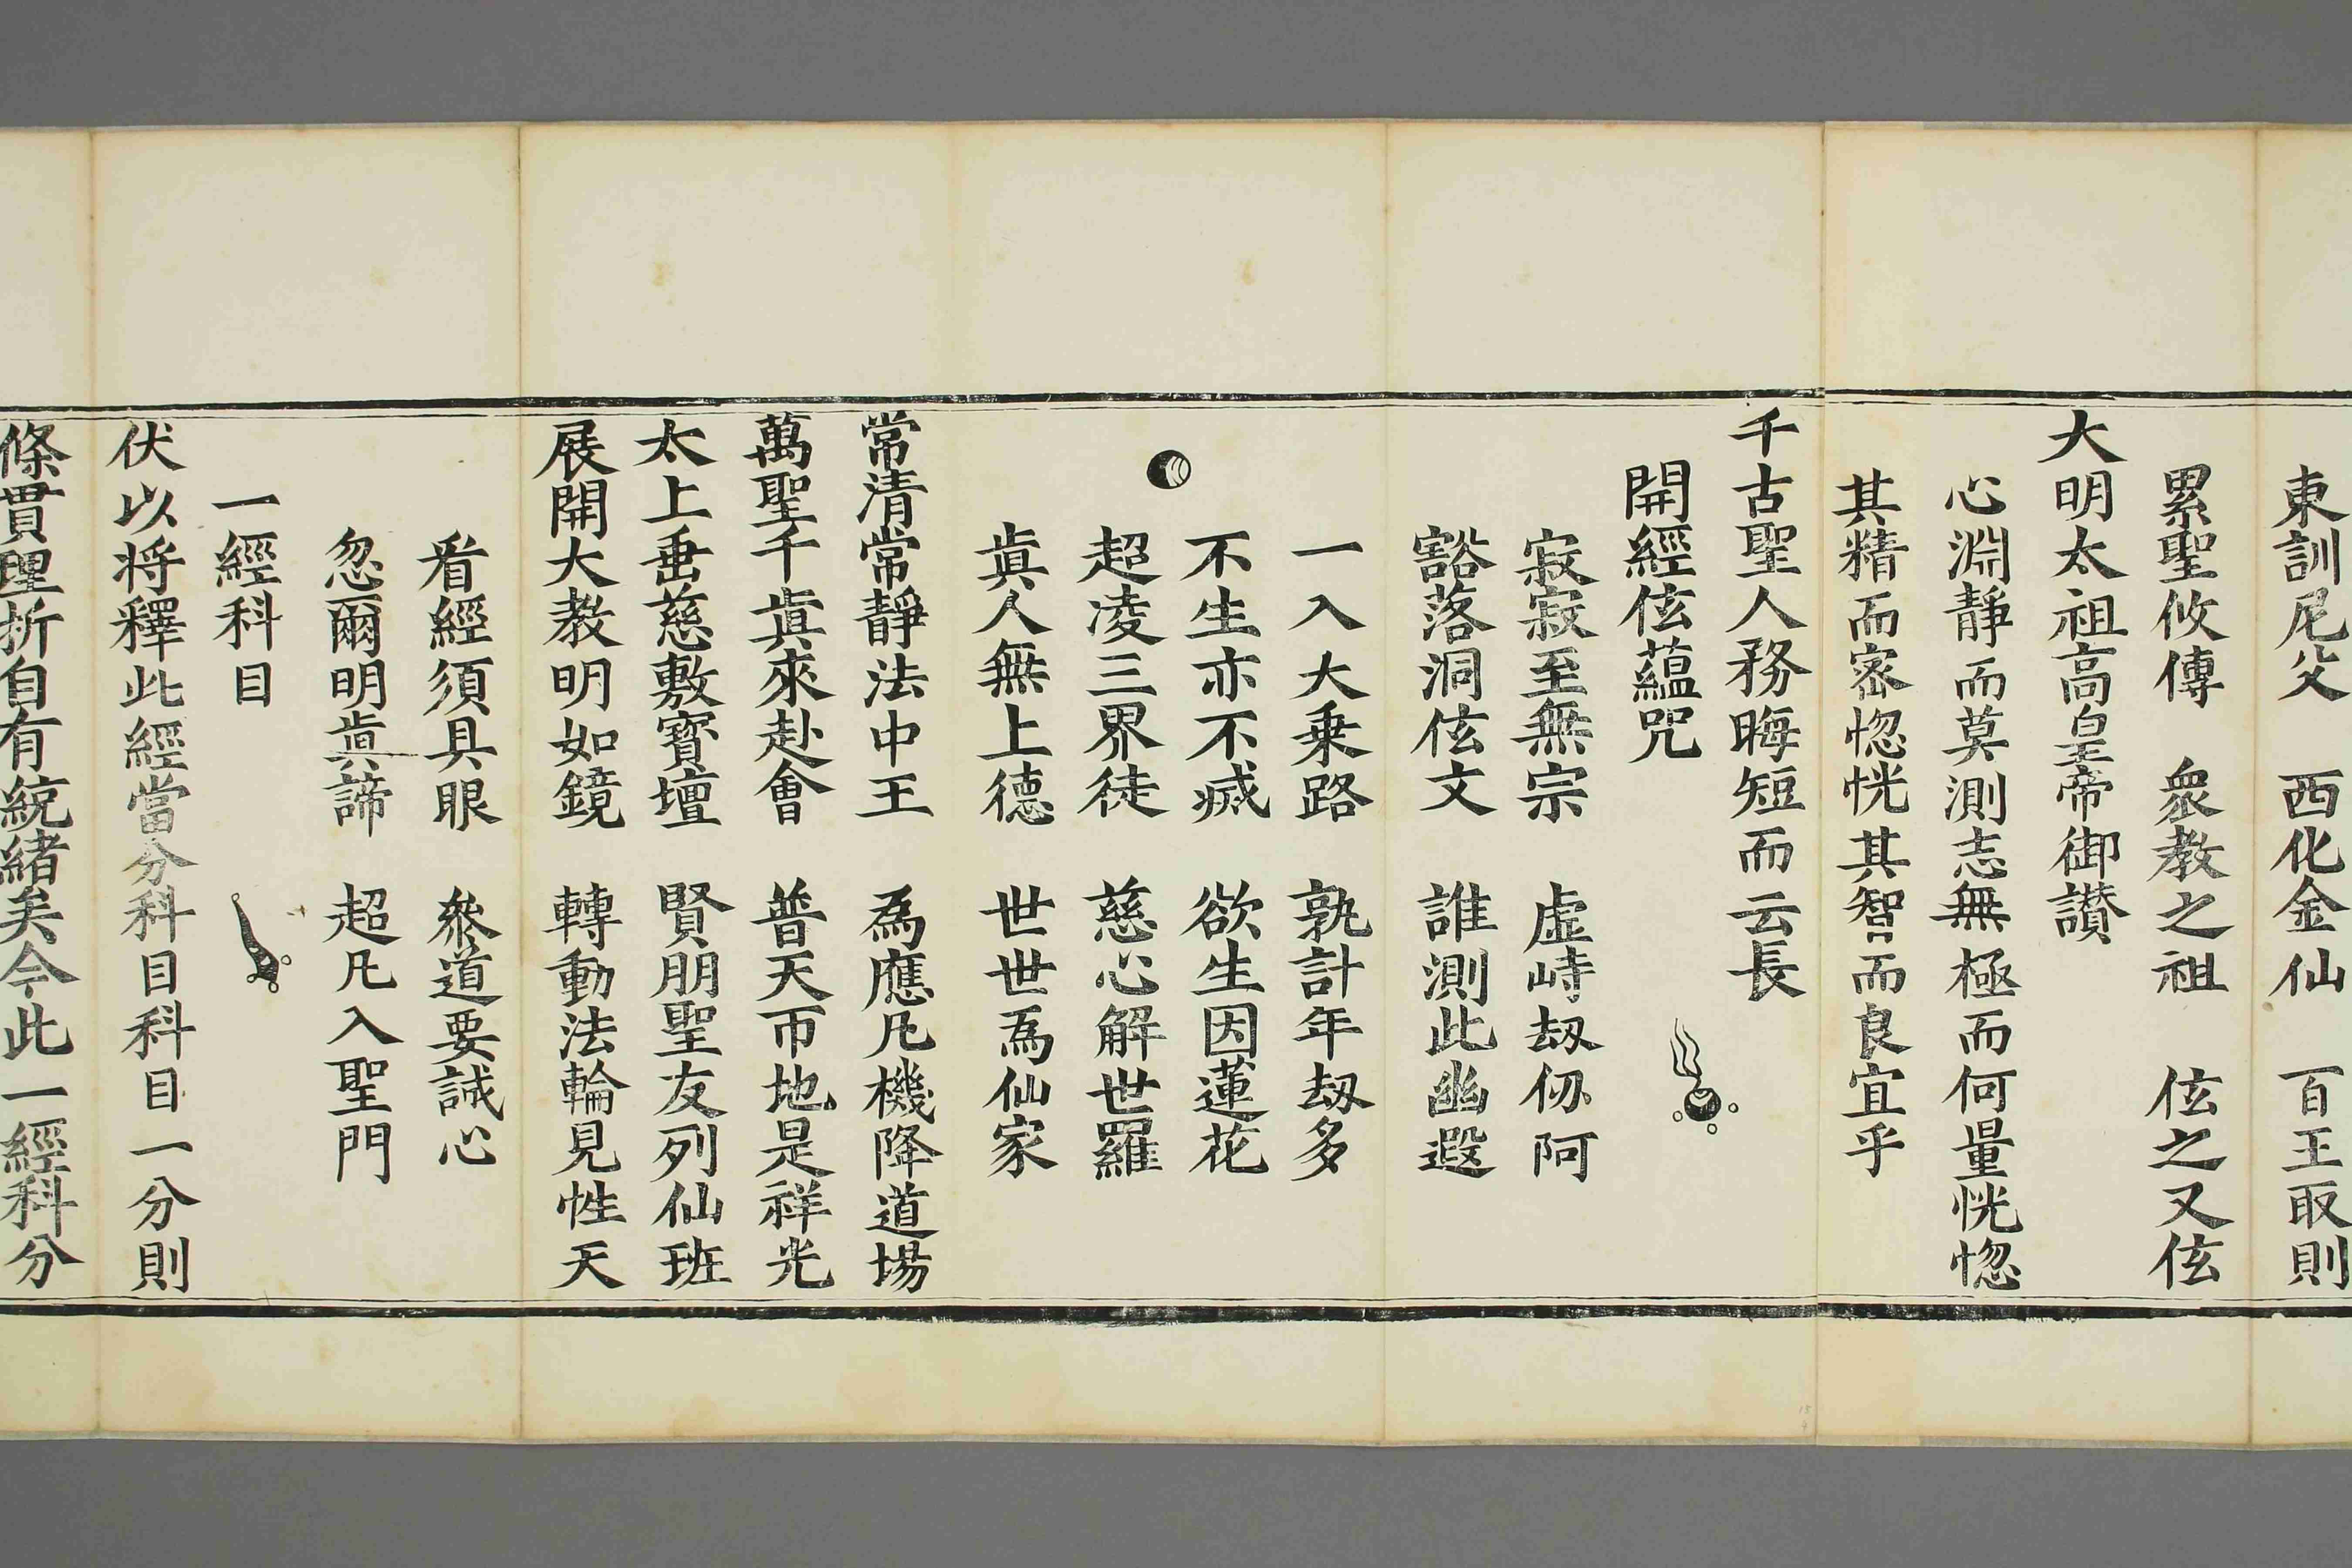 東訓尼父　西化金仙　百王取則
累聖攸傳　衆教之祖　伭之又伭
大明太祖高皇帝御讃
心淵靜而莫測志無極而何量恍惚
其精而宻惚恍其智而良宜乎
千古聖人務晦短而云長
開經伭蘊咒
寂寂至無宗　虛峙刼仞阿
豁落洞伭文　誰測此幽遐
一入大乗路　孰計年刼多
不生亦不滅　欲生因蓮花
超凌三界徒　慈心解世羅
眞人無上德　世世爲仙家
常清常靜法中王　爲應凡機降道場
萬聖千眞來赴會　普天帀地是祥光
太上垂慈敷寶壇　賢朋聖友列仙班
展開大教明如鏡　轉動法輪見性天
看經須具眼　叅道要誠心
忽爾明眞諦　超凡入聖門
一經科目
伏以将釋此經當分科目科目一分則
條貫理折自有統緒矣今此一經科分